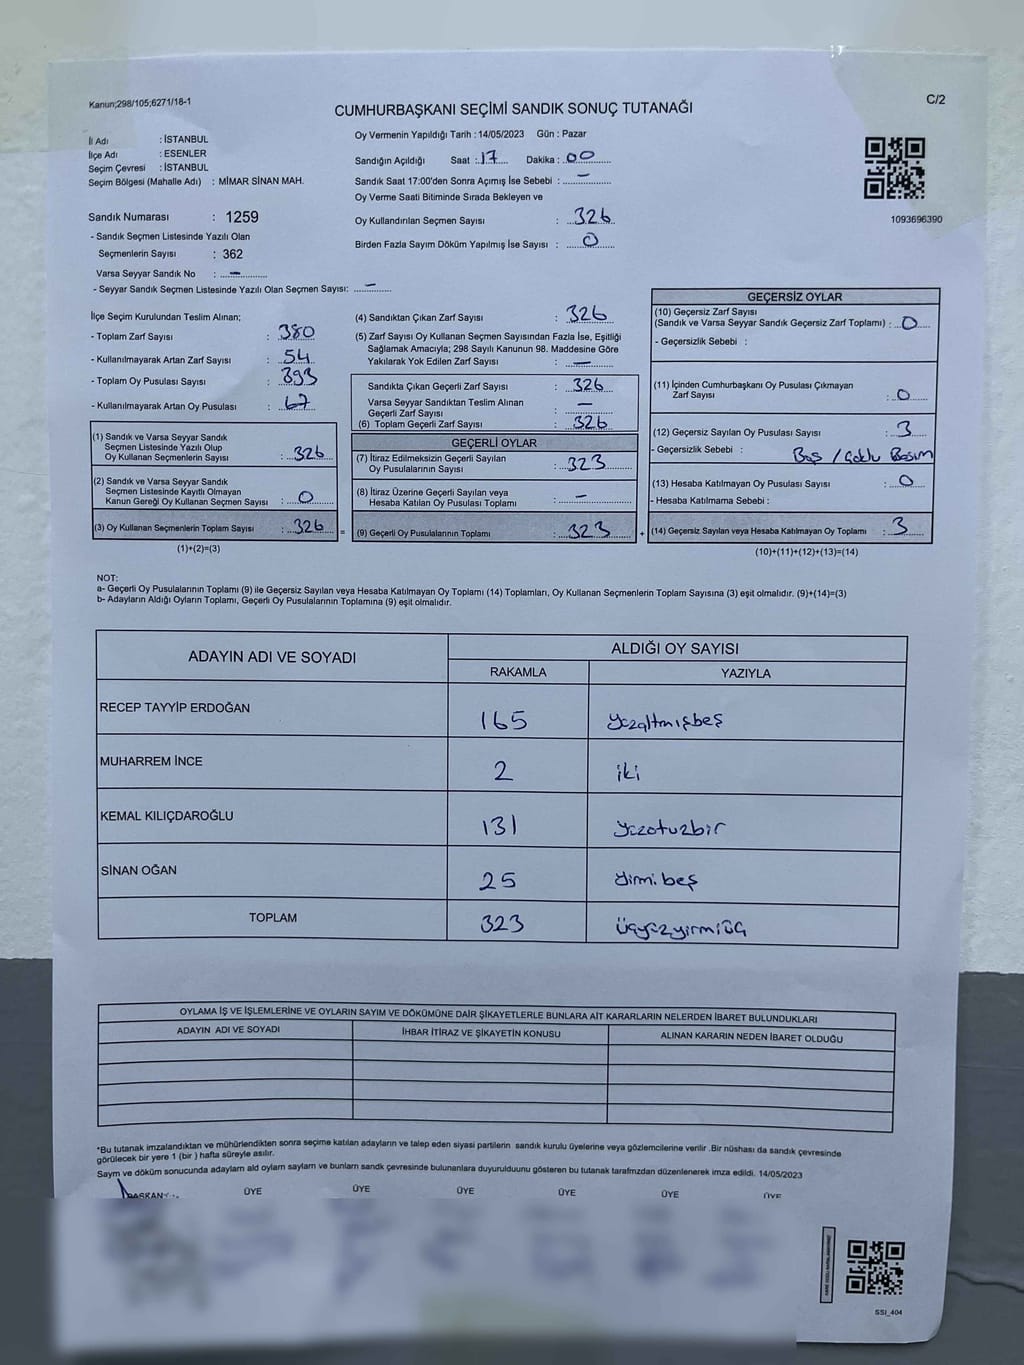 Kanun;298/105;6271/18-1
C/2
CUMHURBAŞKANI SEÇİMİ SANDIK SONUÇ TUTANAĞI
İl Adı : İSTANBUL
İlçe Adı : ESENLER
Seçim Çevresi : İSTANBUL
Seçim Bölgesi (Mahalle Adı) : MİMAR SİNAN MAH.
Sandık Numarası : 1259
- Sandık Seçmen Listesinde Yazılı Olan
Seçmenlerin Sayısı : 362
Varsa Seyyar Sandık No : –
- Seyyar Sandık Seçmen Listesinde Yazılı Olan Seçmen Sayısı: –
Oy Vermenin Yapıldığı Tarih : 14/05/2023 Gün : Pazar
Sandığın Açıldığı Saat : 17 Dakika : 00
Sandık Saat 17:00'den Sonra Açımış İse Sebebi : –
Oy Verme Saati Bitiminde Sırada Bekleyen ve
Oy Kullandırılan Seçmen Sayısı : 326
Birden Fazla Sayım Döküm Yapılmış İse Sayısı : 0
1093696390
İlçe Seçim Kurulundan Teslim Alınan;
- Toplam Zarf Sayısı : 380
- Kullanılmayarak Artan Zarf Sayısı : 54
- Toplam Oy Pusulası Sayısı : 393
- Kullanılmayarak Artan Oy Pusulası : 67
(1) Sandık ve Varsa Seyyar Sandık
Seçmen Listesinde Yazılı Olup
Oy Kullanan Seçmenlerin Sayısı : 326
(2) Sandık ve Varsa Seyyar Sandık
Seçmen Listesinde Kayıtlı Olmayan
Kanun Gereği Oy Kullanan Seçmen Sayısı : 0
(3) Oy Kullanan Seçmenlerin Toplam Sayısı : 326
(1)+(2)=(3)
=
(4) Sandıktan Çıkan Zarf Sayısı : 326
(5) Zarf Sayısı Oy Kullanan Seçmen Sayısından Fazla İse, Eşitliği
Sağlamak Amacıyla; 298 Sayılı Kanunun 98. Maddesine Göre
Yakılarak Yok Edilen Zarf Sayısı : –
Sandıkta Çıkan Geçerli Zarf Sayısı : 326
Varsa Seyyar Sandıktan Teslim Alınan
Geçerli Zarf Sayısı : –
(6) Toplam Geçerli Zarf Sayısı : 326
GEÇERLİ OYLAR
(7) İtiraz Edilmeksizin Geçerli Sayılan
Oy Pusulalarının Sayısı : 323
(8) İtiraz Üzerine Geçerli Sayılan veya
Hesaba Katılan Oy Pusulaları Toplamı : –
(9) Geçerli Oy Pusulalarının Toplamı : 323
+
GEÇERSİZ OYLAR
(10) Geçersiz Zarf Sayısı
(Sandık ve Varsa Seyyar Sandık Geçersiz Zarf Toplamı) : 0
- Geçersizlik Sebebi :
(11) İçinden Cumhurbaşkanı Oy Pusulası Çıkmayan
Zarf Sayısı : 0
(12) Geçersiz Sayılan Oy Pusulası Sayısı : 3
- Geçersizlik Sebebi : Boş / Çoklu Basım
(13) Hesaba Katılmayan Oy Pusulası Sayısı : 0
- Hesaba Katılmama Sebebi :
(14) Geçersiz Sayılan veya Hesaba Katılmayan Oy Toplamı : 3
(10)+(11)+(12)+(13)=(14)
NOT:
a- Geçerli Oy Pusulalarının Toplamı (9) ile Geçersiz Sayılan veya Hesaba Katılmayan Oy Toplamı (14) Toplamları, Oy Kullanan Seçmenlerin Toplam Sayısına (3) eşit olmalıdır. (9)+(14)=(3)
b- Adayların Aldığı Oyların Toplamı, Geçerli Oy Pusulalarının Toplamına (9) eşit olmalıdır.
ADAYIN ADI VE SOYADI
ALDIĞI OY SAYISI
RAKAMLA YAZIYLA
RECEP TAYYİP ERDOĞAN 165 yüzaltmışbeş
MUHARREM İNCE 2 iki
KEMAL KILIÇDAROĞLU 131 yüzotuzbir
SİNAN OĞAN 25 yirmi beş
TOPLAM 323 üçyüzyirmiüç
OYLAMA İŞ VE İŞLEMLERİNE VE OYLARIN SAYIM VE DÖKÜMÜNE DAİR ŞİKAYETLERLE BUNLARA AİT KARARLARIN NELERDEN İBARET BULUNDUKLARI
ADAYIN ADI VE SOYADI İHBAR İTİRAZ VE ŞİKAYETİN KONUSU ALINAN KARARIN NEDEN İBARET OLDUĞU
*Bu tutanak imzalandıktan ve mühürlendikten sonra seçime katılan adayların ve talep eden siyasi partilerin sandık kurulu üyelerine veya gözlemcilerine verilir .Bir nüshası da sandık çevresinde
görülecek bir yere 1 (bir ) hafta süreyle asılır.
Sayım ve döküm sonucunda adayların ald oyların sayların ve bunların sandık çevresinde bulunanlara duyurulduunu gösteren bu tutanak tarafmzdan düzenlenerek imza edildi. 14/05/2023
BAŞKAN ÜYE ÜYE ÜYE ÜYE ÜYE ÜYE
SSI_404